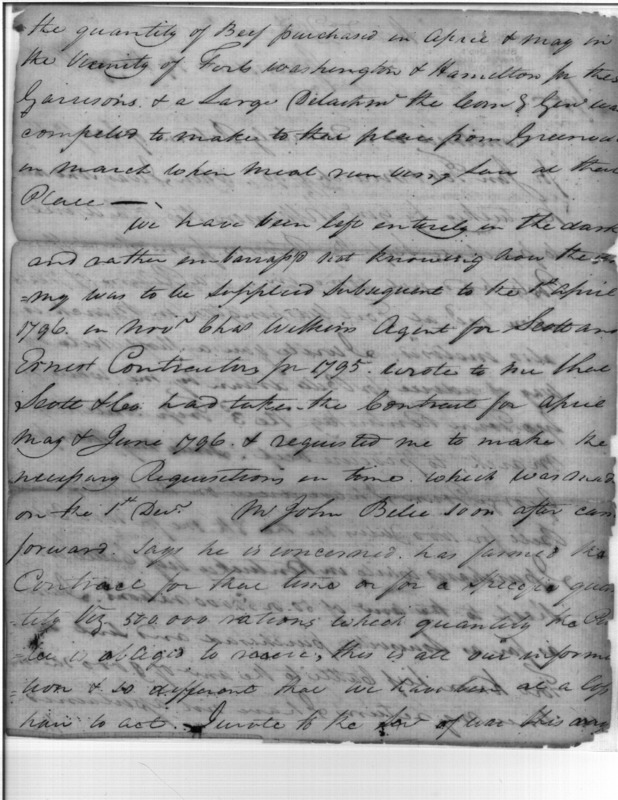 the quantity of Beef purchased in April & May in
the Vicinity of Forts Washington & Hamilton for these
Garrisons & a Large Detachmt the Com g Genl was
compelled to make to that place from Greenvill
in March when Meat run very Low at that
Place —
We have been left entirely in the dark
and rather embarrass'd not knowing how the ar
=my was to be Supplied Subsequent to the 1st April
1796. in Novr Chas Wilkins Agent for Scott and
Ernest Contractors for 1795. wrote to me that
Scott & Co. had taken the Contract for April
May & June 1796. & requested me to make the
necessary Requisitions in time. which was made
on the 1st Decr Mr John Belie soon after cam
forward. Says he is concerned. has farmed the
Contract for that time or for a specific quan
=tity Viz 500.000 rations which quantity the
is obliged to receive, this is all our informa
=tion & so different that we have been at a Loss
how to act. I wrote to the Secy of War this